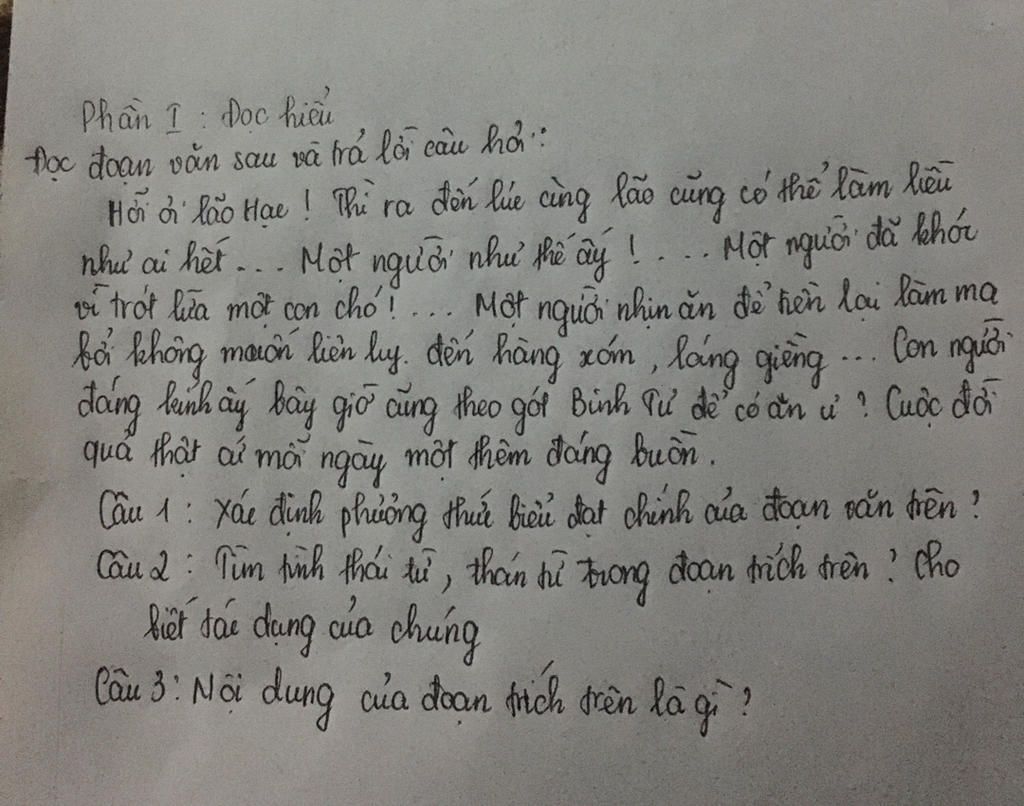 Phần I : Đọc hiểu
Đọc đoạn văn sau và trả lời câu hỏi :
Hỡi ơi lão Hạc ! Thì ra đến lúc cùng lão cũng có thể làm liều
như ai hết ... Một người như thế ấy ! .... Một người đã khóc
vì trót lừa một con chó ! .... Một người nhịn ăn để tiền lại làm ma
bởi không muốn liên luỵ. đến hàng xóm , láng giềng ... Con người
đáng kính ấy bây giờ cũng theo gót Binh Tư để có ăn ư ? Cuộc đời
quả thật cứ mỗi ngày một thêm đáng buồn .
Câu 1 : Xác định phương thức biểu đạt chính của đoạn văn trên ?
Câu 2 : Tìm tình thái từ , thán từ trong đoạn trích trên ? Cho
biết tác dụng của chúng
Câu 3 : Nội dung của đoạn trích trên là gì ?